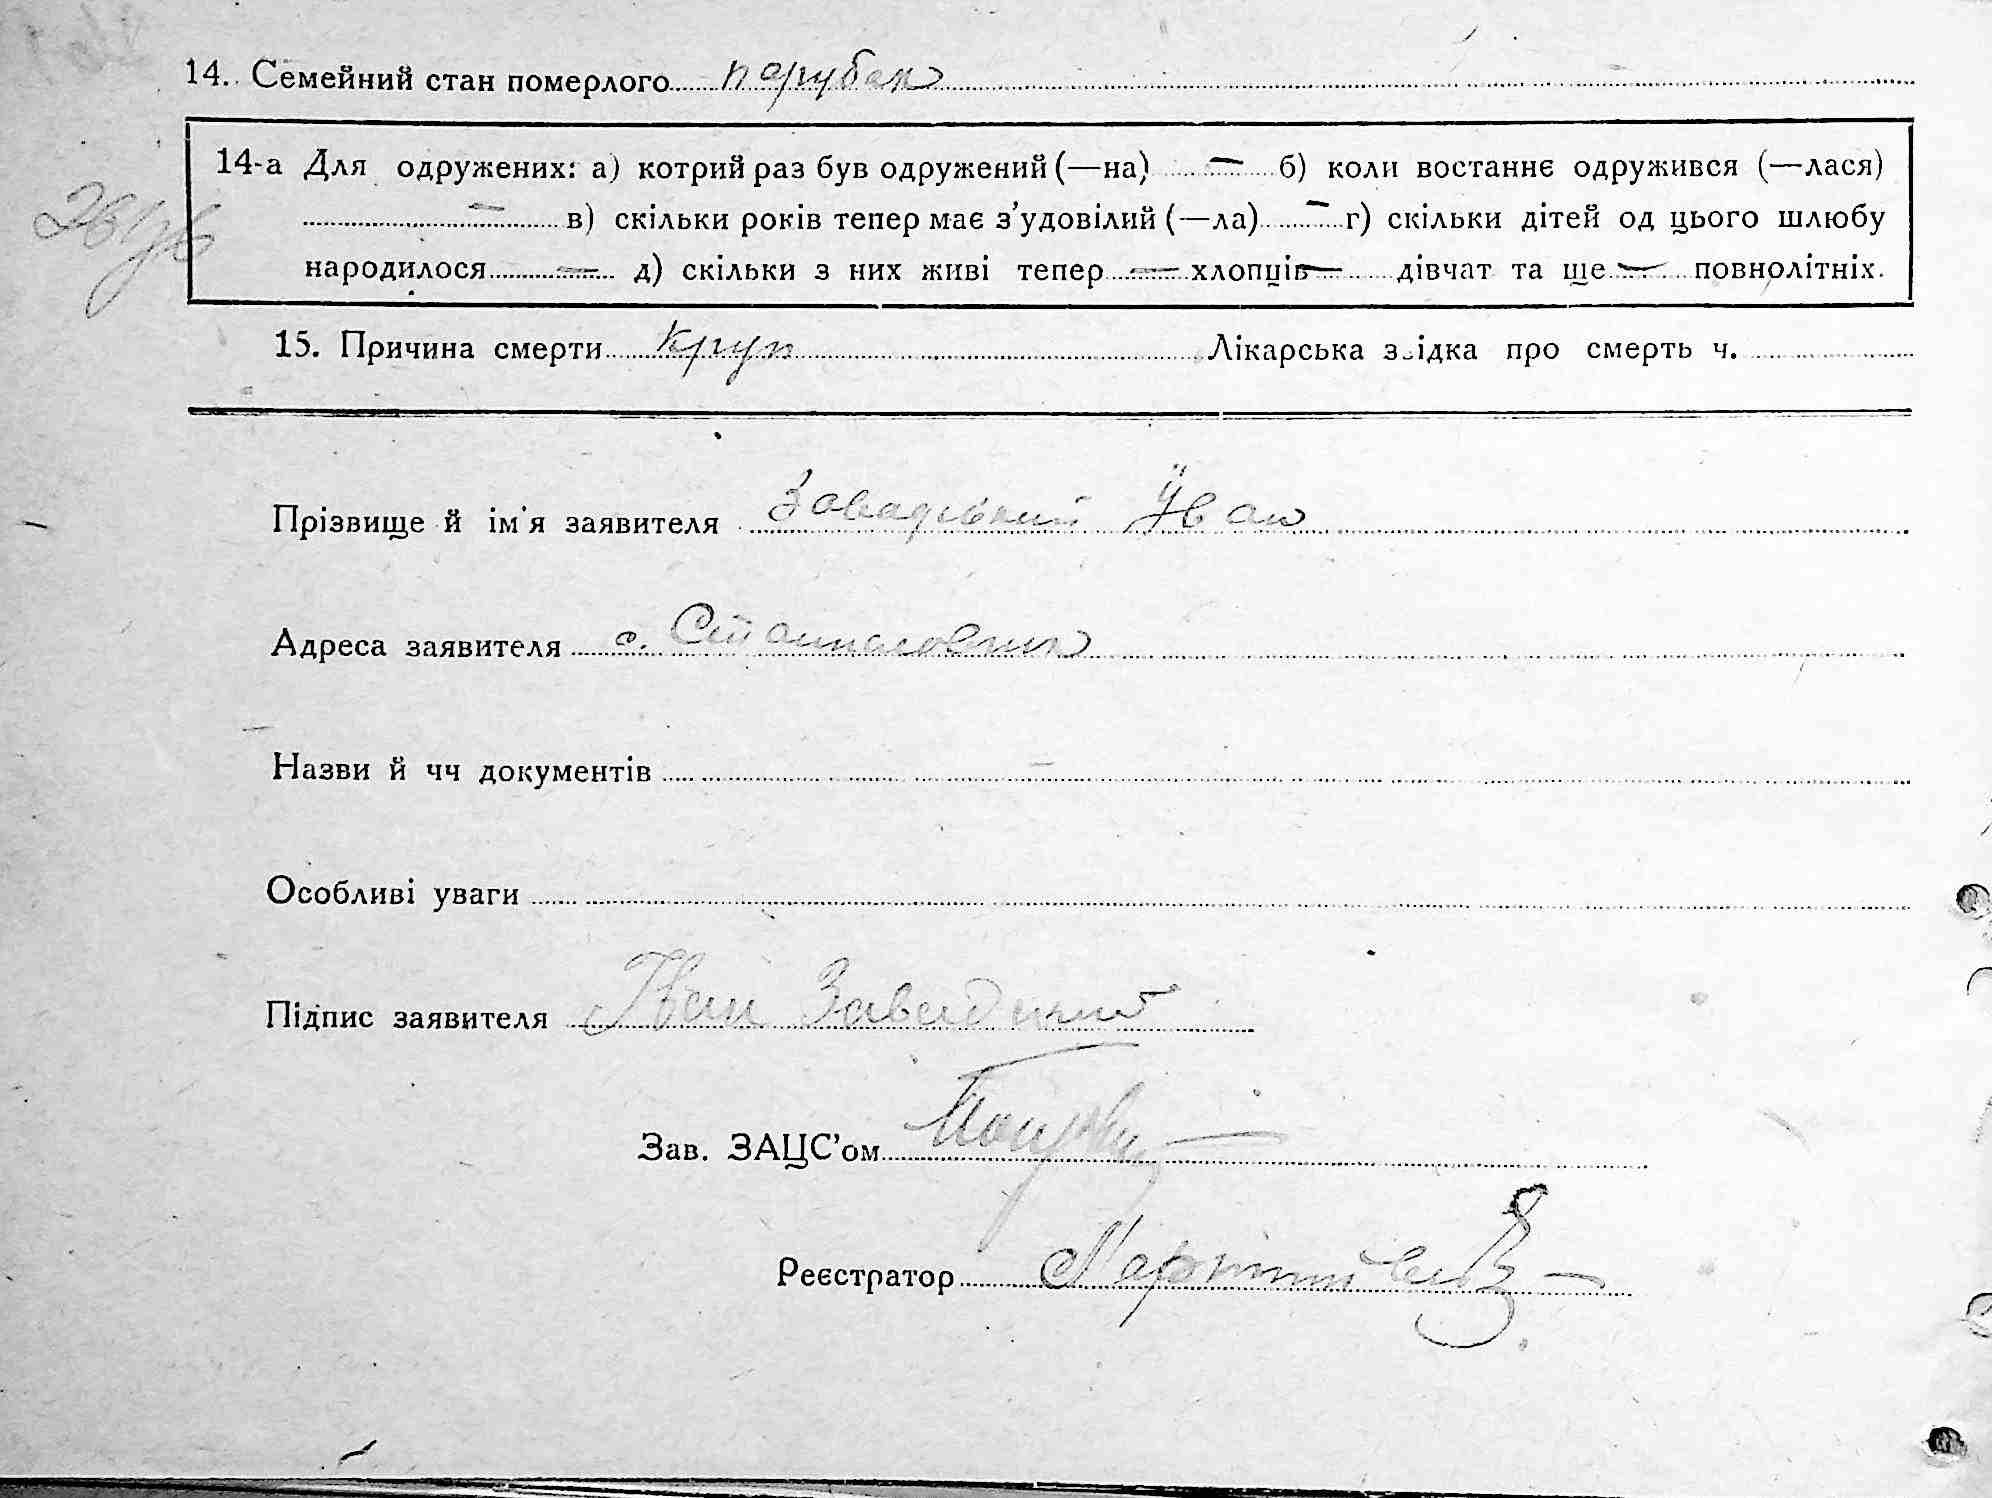 14. Семейний стан померлого парубок
14-а Для одружених: а) котрий раз був одружений (—на) — б) коли востаннє одружився (—лася)
— в) скільки років тепер має з’удовілий (—ла) — г) скільки дітей од цього шлюбу
народилося — д) скільки з них живі тепер — хлопців — дівчат та ще — повнолітніх.
15. Причина смерти круп Лікарська звідка про смерть ч.
Прізвище й ім’я заявителя Завадський Іван
Адреса заявителя с.
Назви й чч документів —
Особливі уваги
Підпис заявителя Іван Завадский
Зав. ЗАЦС’ом
Реєстратор